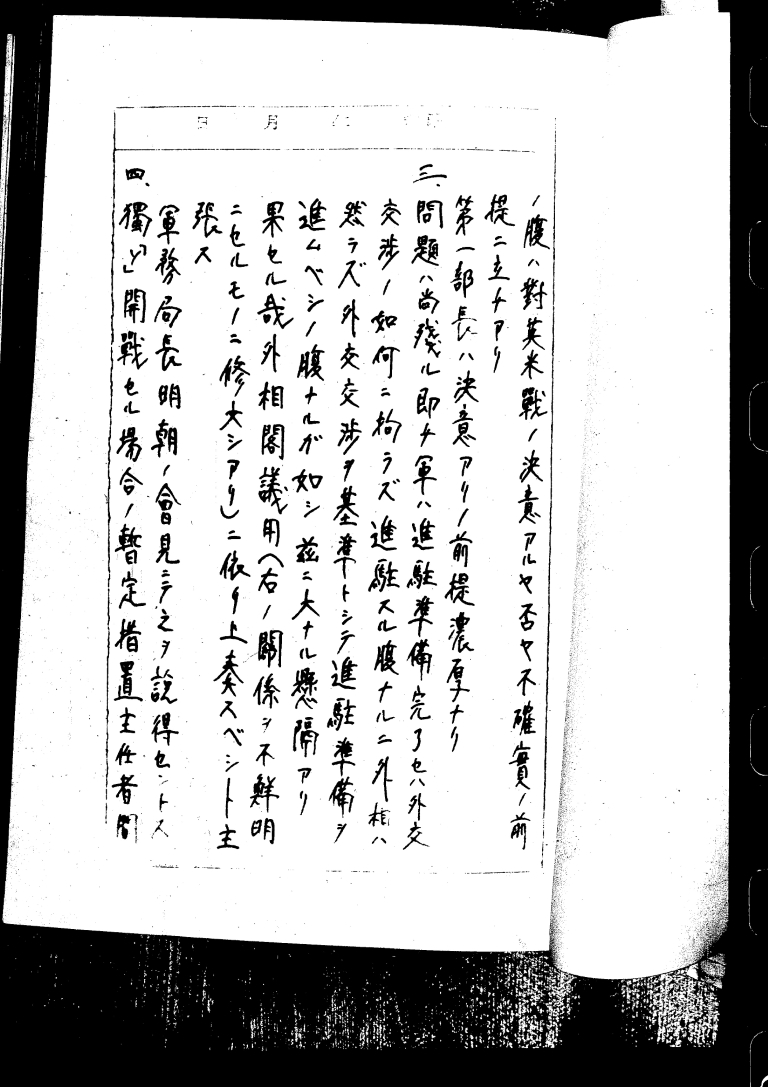 月 日
ノ腹ハ對英米戰ノ決意アルヤ否ヤ不確實ノ前
提ニ立チアリ
第一部長ハ決意アリノ前提濃厚ナリ
三、問題ハ尚殘ル即チ軍ハ進駐準備完了セハ外交
交渉ノ如何ニ拘ラズ進駐スル腹ナルニ外相ハ
然ラズ外交交渉ヲ基準トシテ進駐準備ヲ
進ムベシノ腹ナルガ如シ 茲ニ大ナル懸隔アリ
果セル哉外相閣議用(右ノ關係ヲ不鮮明
ニセルモノニ修文シアリ)ニ依リ上奏スベシト主
張ス
軍務局長明朝ノ會見ニテ之ヲ説得セントス
四、獨「ソ」開戰セル場合ノ暫定措置主任者間